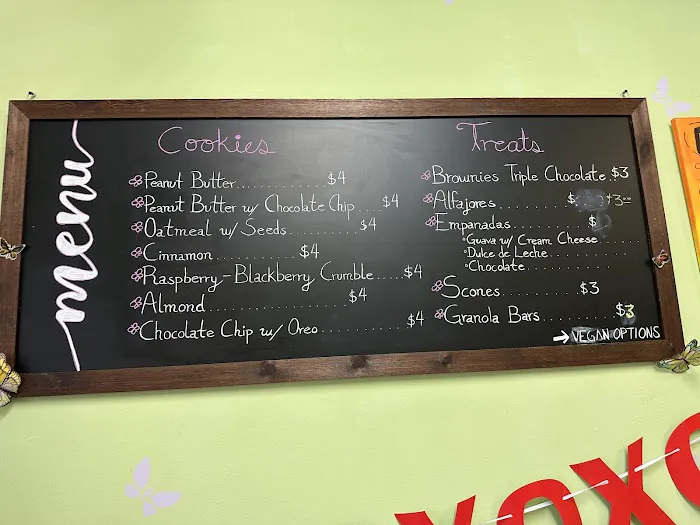 menu
Cookies
Peanut Butter............$4
Peanut Butter w/ Chocolate Chip.....$4
Oatmeal w/ Seeds..........$4
Cinnamon............$4
Raspberry-Blackberry Crumble.....$4
Almond....................$4
Chocolate Chip w/ Oreo............$4
Treats
Brownies Triple Chocolate.$3
Alfajores..........$ $3.00
Empanadas...........$
Guava w/ Cream Cheese......
Dulce de Leche............
Chocolate................
Scones............$3
Granola Bars..........$3
→ VEGAN OPTIONS
XOXO